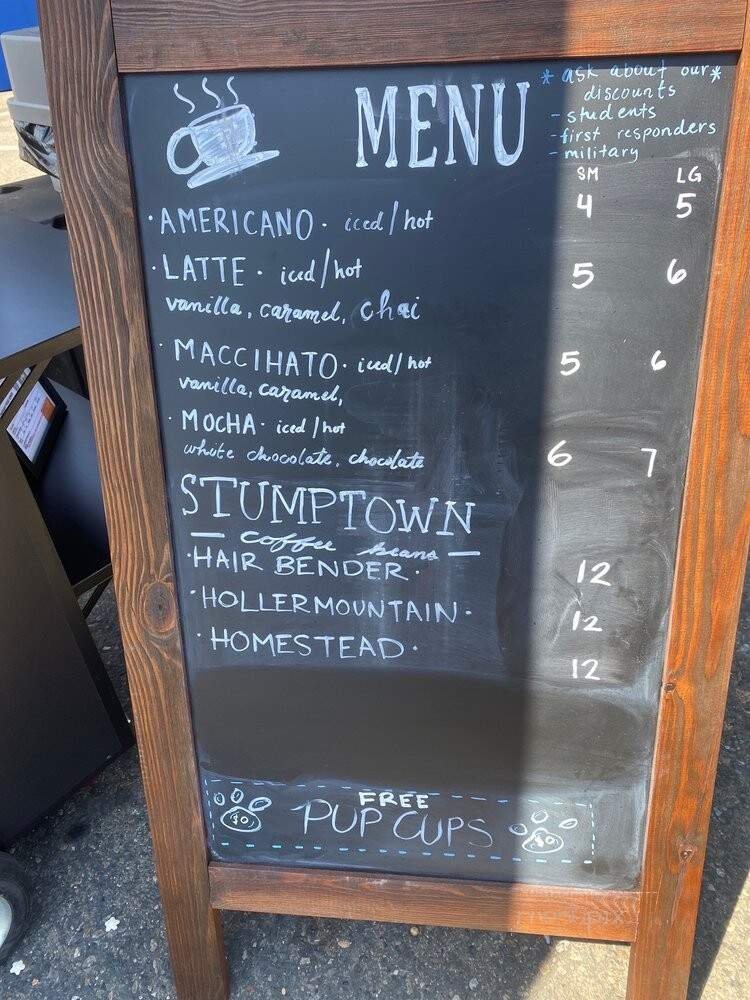 * ask about our *
discounts
- students
- first responders
- military
MENU
SM LG
· AMERICANO · iced/hot 4 5
· LATTE · iced/hot 5 6
vanilla, caramel, chai
· MACCIHATO · iced/hot 5 6
vanilla, caramel,
· MOCHA · iced/hot
white chocolate, chocolate 6 7
STUMPTOWN
— coffee beans —
· HAIR BENDER · 12
· HOLLER MOUNTAIN · 12
· HOMESTEAD · 12
FREE
$0 PUP CUPS $0